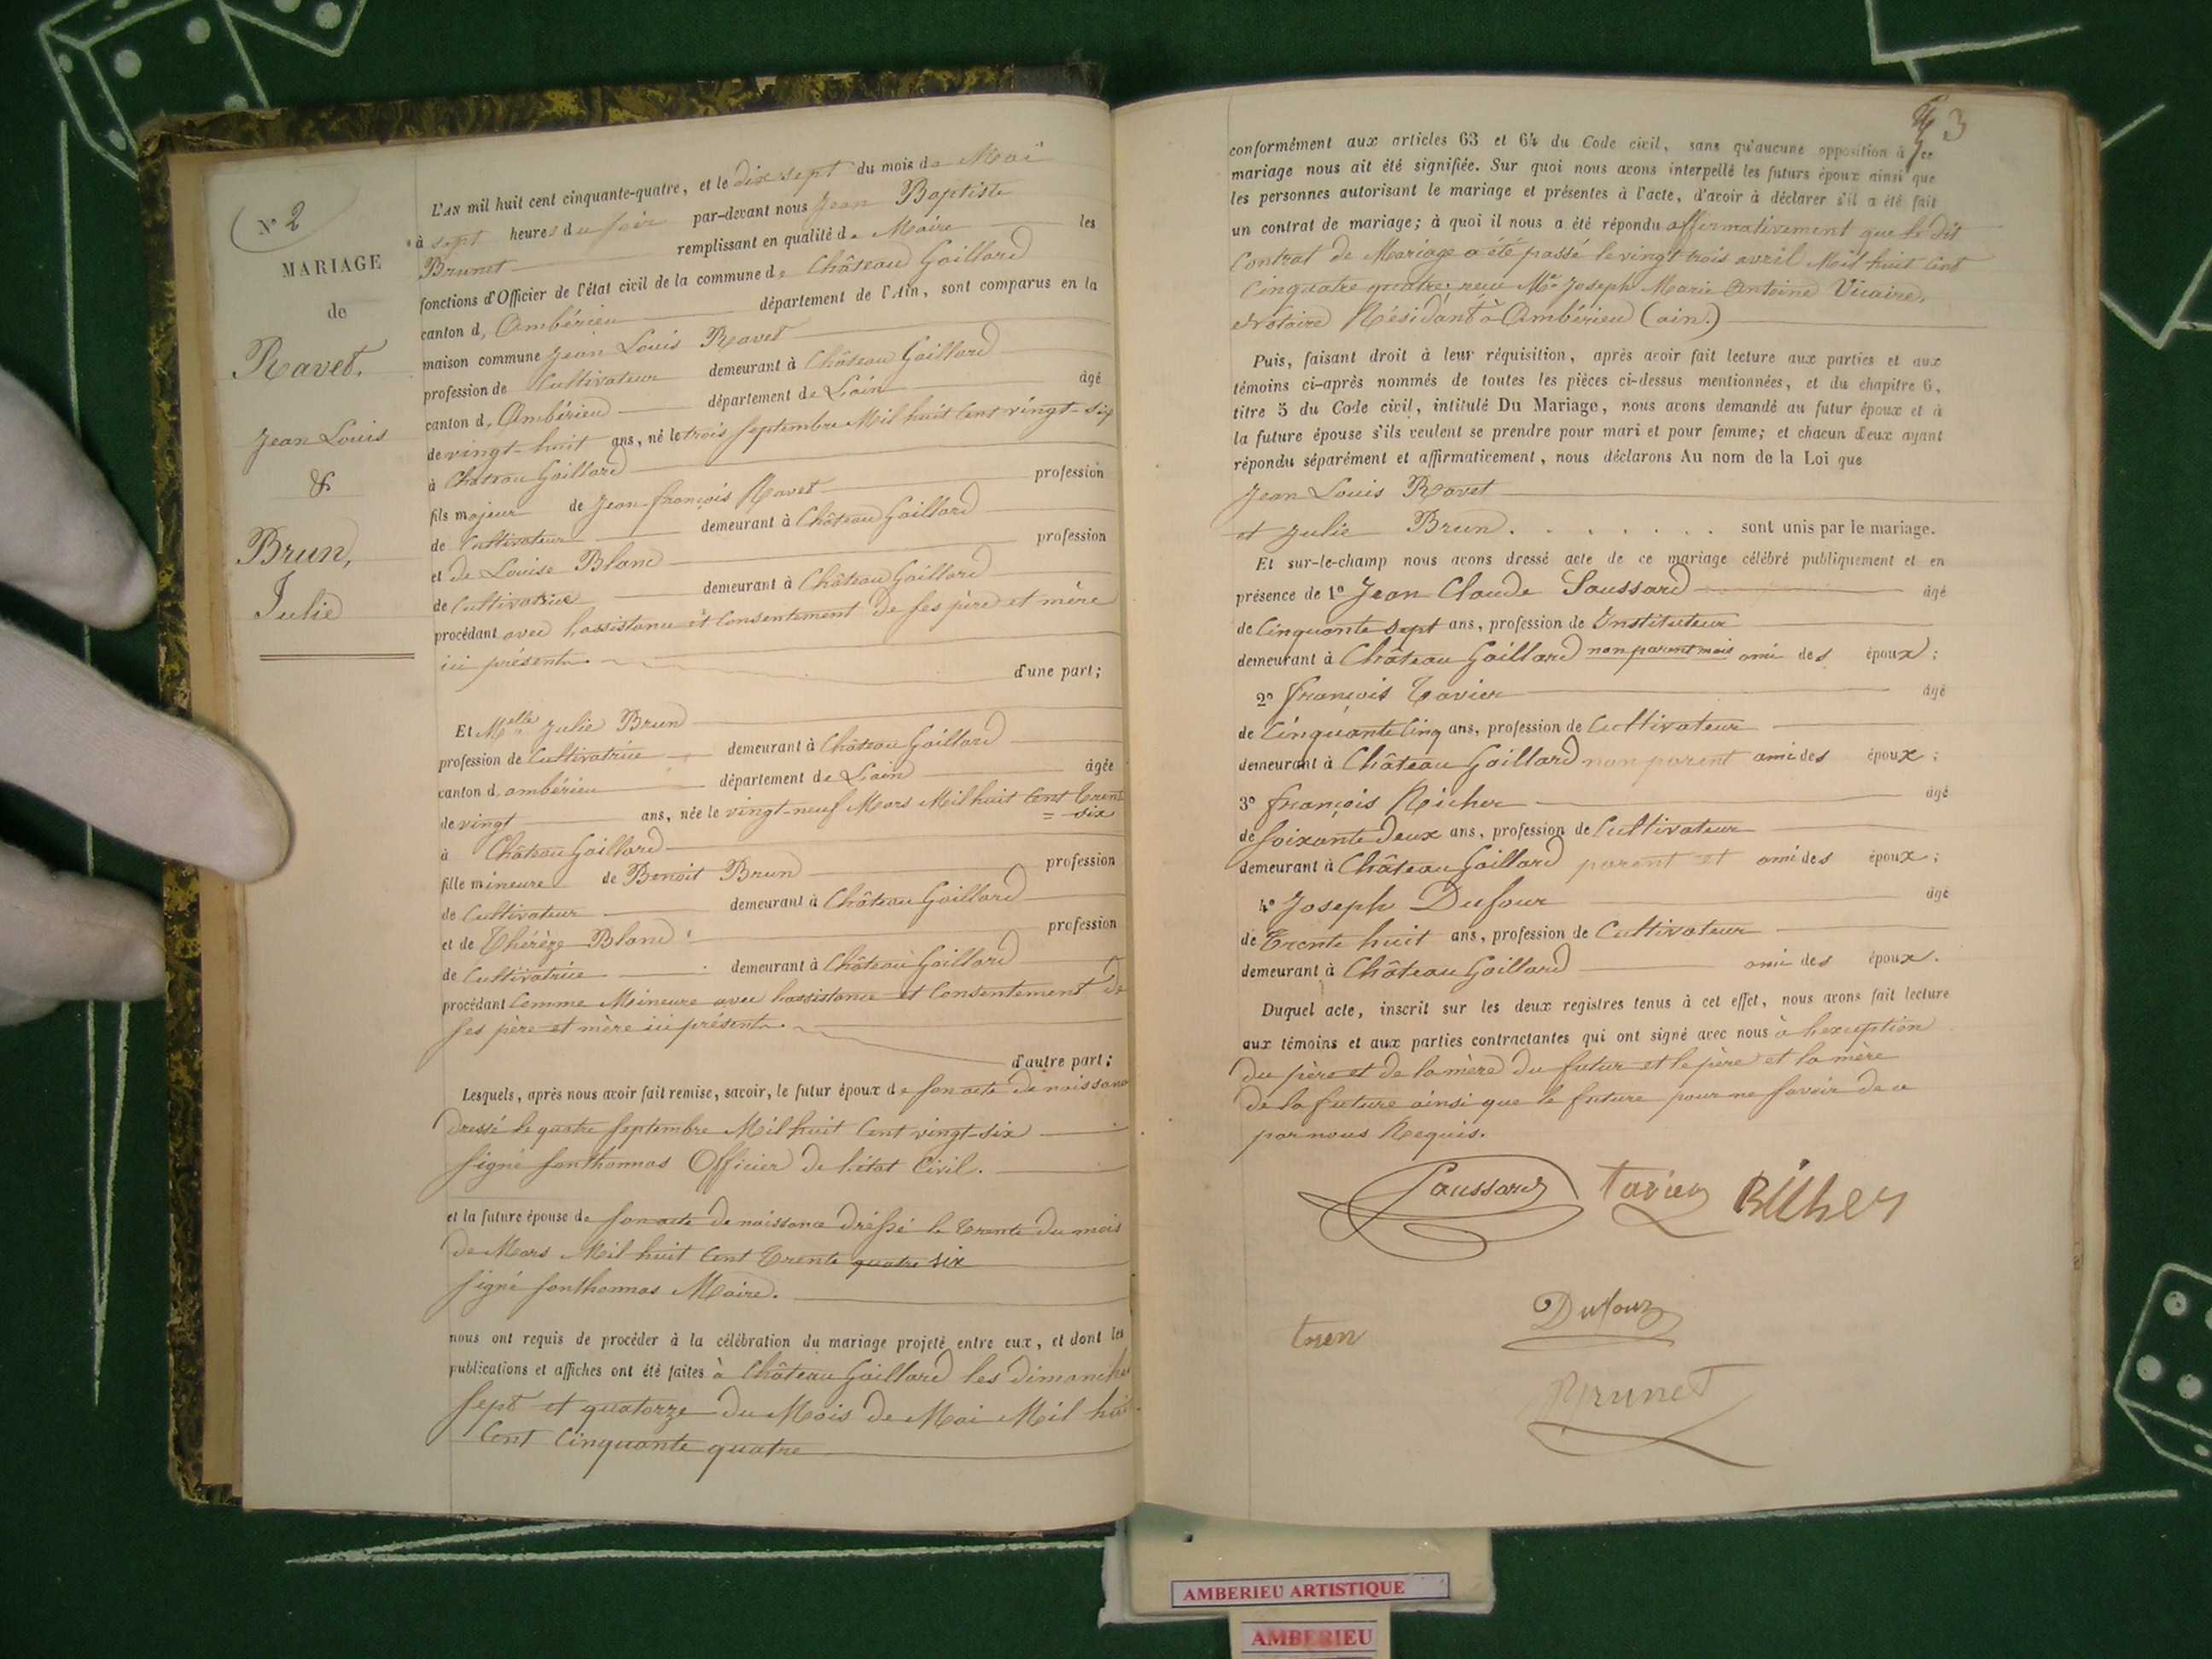 N° 2
MARIAGE
de
Ravet.
Jean Louis
&
Brun,
Julie
L'AN mil huit cent cinquante-quatre, et le dix sept du mois de Mai
à sept heures du soir par-devant nous Jean Baptiste
Brunet remplissant en qualité de Maire les
fonctions d'Officier de l'état civil de la commune de Château Gaillard
canton d, Ambérieu département de l'Ain, sont comparus en la
maison commune Jean Louis Ravet
profession de Cultivateur demeurant à Château Gaillard
canton d, Ambérieu département de L'ain âgé
de vingt-huit ans, né le trois septembre Mil huit Cent vingt-six
à Château Gaillard
fils majeur de Jean françois Ravet profession
de Cultivateur demeurant à Château Gaillard
et de Louise Blanc profession
de Cultivatrice demeurant à Château Gaillard
procédant avec l'assistance et Consentement de ses père et mère
ici présent
d'une part;
Et Melle Julie Brun
profession de Cultivatrice demeurant à Château Gaillard
canton d, ambérieu département de L'ain âgée
de vingt ans, née le vingt-neuf Mars Mil huit Cent Trent
= six
à Château Gaillard
fille mineure de Benoit Brun profession
de Cultivateur demeurant à Château Gaillard
et de Thérèze Blanc profession
de Cultivatrice demeurant à Château Gaillard
procédant Comme Mineure avec l'assistance et Consentement de
ses père et mère ici présent
d'autre part;
Lesquels, après nous avoir fait remise, savoir, le futur époux de son acte de naissance
dressé le quatre septembre Mil huit Cent vingt-six
signé fonthonnas Officier de l'état Civil.
et la future épouse de son acte de naissance dréssé le Trente du mois
de Mars Mil huit Cent Trente quatre six
signé fonthonnas Maire.
nous ont requis de procéder à la célébration du mariage projeté entre eux, et dont les
publications et affiches ont été faites à Château Gaillard les dimanches
sept et quatorze du Mois de Mai Mil huit
Cent Cinquante quatre
3
conformément aux articles 63 et 64 du Code civil, sans qu'aucune opposition à ce
mariage nous ait été signifiée. Sur quoi nous avons interpellé les futurs époux ainsi que
les personnes autorisant le mariage et présentes à l'acte, d'avoir à déclarer s'il a été fait
un contrat de mariage; à quoi il nous a été répondu affirmativement que le dit
Contrat de Mariage a été passé le vingt trois avril Mil huit Cent
Cinquatre quatre; reçu Me Joseph Marie Antoine Vicaire,
Notaire Résidant à Ambérieu (ain.)
Puis, faisant droit à leur réquisition, après avoir fait lecture aux parties et aux
témoins ci-après nommés de toutes les pièces ci-dessus mentionnées, et du chapitre 6,
titre 5 du Code civil, intitulé Du Mariage, nous avons demandé au futur époux et à
la future épouse s'ils veulent se prendre pour mari et pour femme; et chacun d'eux ayant
répondu séparément et affirmativement, nous déclarons Au nom de la Loi que
Jean Louis Ravet
et Julie Brun . . . . . . . sont unis par le mariage.
Et sur-le-champ nous avons dressé acte de ce mariage célébré publiquement et en
présence de 1° Jean Claude Saussard âgé
de Cinquante sept ans, profession de Instituteur
demeurant à Château Gaillard non parent mais ami des époux;
2° françois Tavier âgé
de Cinquante Cinq ans, profession de Cultivateur
demeurant à Château Gaillard non parent ami des époux;
3° françois Richer âgé
de Soixante deux ans, profession de Cultivateur
demeurant à Château Gaillard parent et ami des époux;
4° Joseph Dufour âgé
de Trente huit ans, profession de Cultivateur
demeurant à Château Gaillard ami des époux.
Duquel acte, inscrit sur les deux registres tenus à cet effet, nous avons fait lecture
aux témoins et aux parties contractantes qui ont signé avec nous à l'exception
du père et de la mère du futur et le père et la mère
de la future ainsi que la future pour ne savoir de ce
par nous Requis.
Saussard Tavier Richer
Dufour
Brunet
AMBERIEU ARTISTIQUE
AMBERIEU